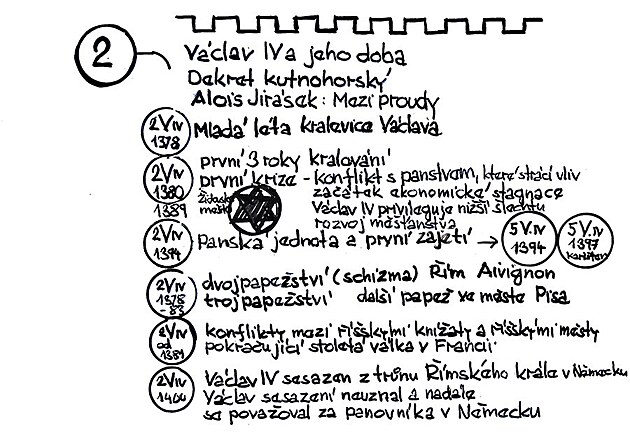 2
Václav IV a jeho doba
Dekret kutnohorský
Alois Jirásek: Mezi proudy
2V IV 1378 Mladá léta kralevice Václava
první 3 roky kralování
2V IV 1380 první krize - konflikt s panstvem, které ztrácí vliv
začátek ekonomické stagnace
1389 Židovské město Václav IV privileguje nižší šlechtu
rozvoj měšťanstva
2V IV 1394 Panská jednota a první zajetí → 5 V. IV 1394 5 V. IV 1397
dvojpapežství (schizma) Řím Aivignon
2V IV 1378 - 83 trojpapežství další papež ve městě Pisa
konflikty mezi říšskými knížaty a říšskými městy
2V IV od 1381 pokračující stoletá válka v Francii
Václav IV sesazen z trůnu Římského krále v Německu
2V IV 1400 Václav sesazení neuznal a nadále
se považoval za panovníka v Německu